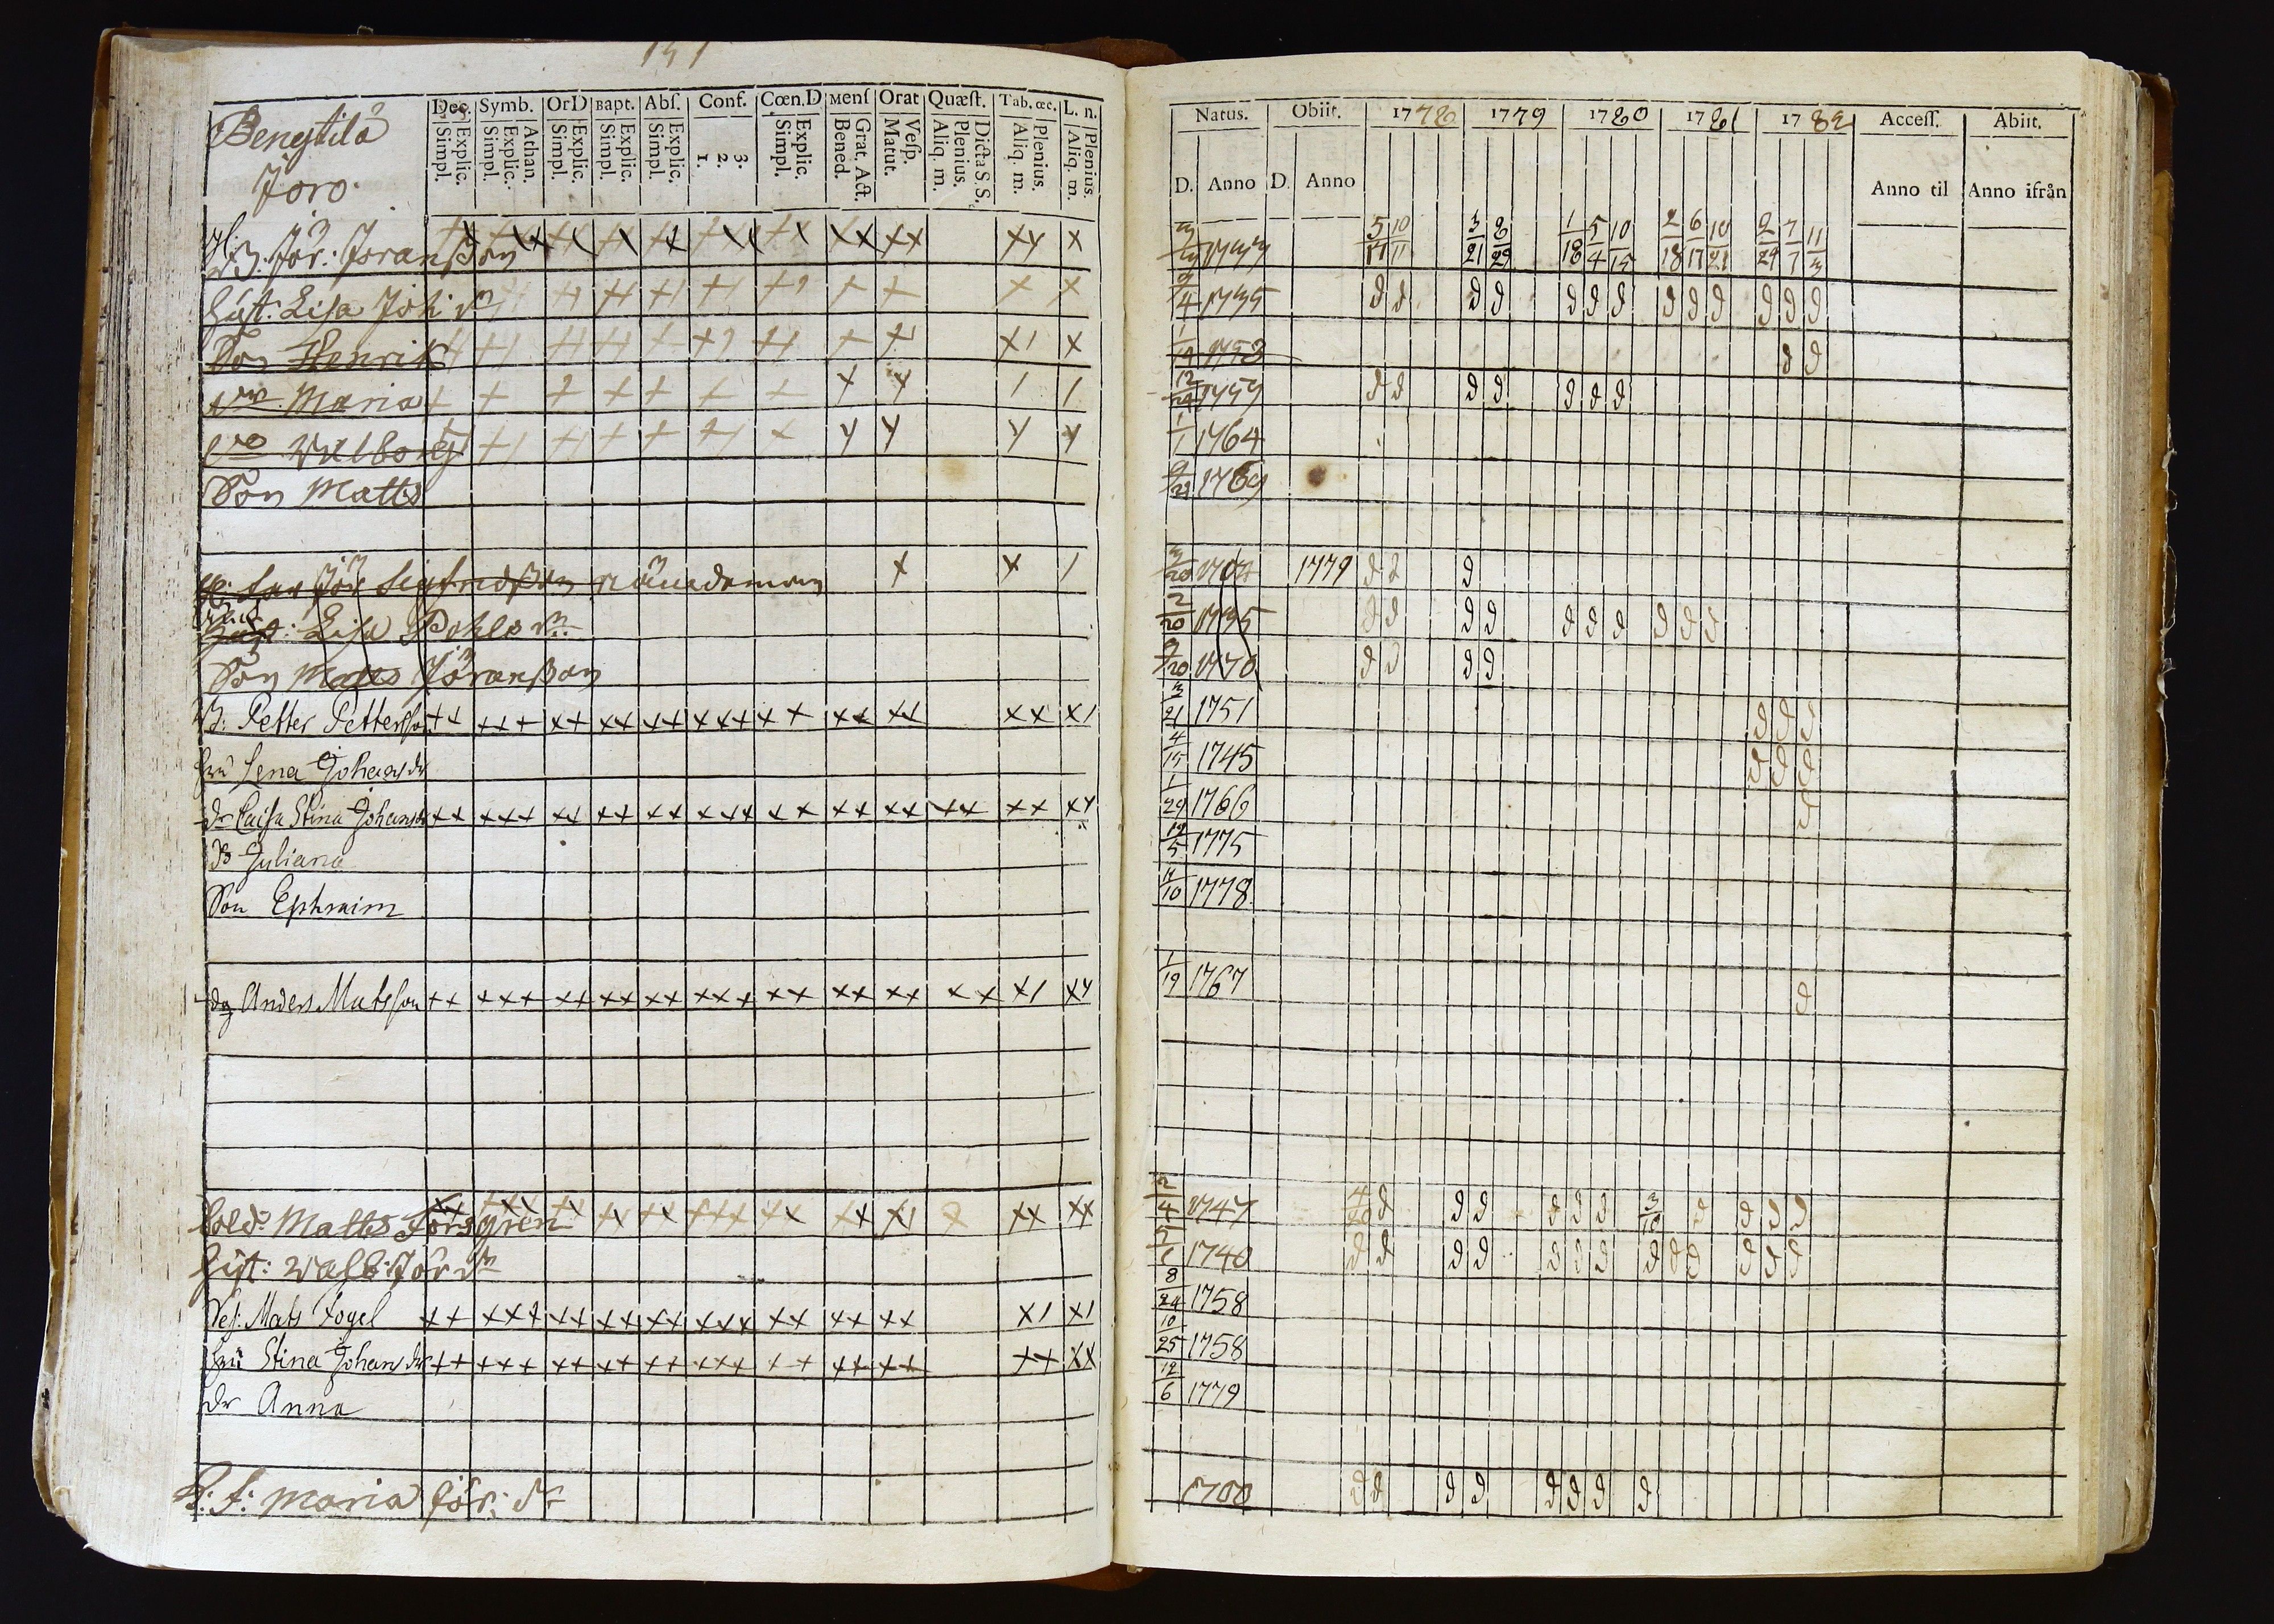 151
Dec. Symb. OrD Bapt. Abſ. Conf. Cœn.D Menſ Orat Quæſt. Tab. œc. L. n.
Explic. Simpl. Athan. Explic. Simpl. Explic. Simpl. Explic. Simpl. Explic. Simpl. 3. 2. 1. Explic. Simpl. Grat. Act. Bened. Veſp. Matut. Dicta S.S. Plenius. Aliq. m. Plenius. Aliq. m. Plenius. Aliq. m.
Bengtilä
Jöro
Jör: Joranßon
Hust: Lisa Joh: dr
Son Henrik
Maria
Walborg
Son Matts
Jör Sigfredßon
Hust: Lisa Pohls dr
Son Matts Jöranßon
B: Petter Pettersson
Hru Lena Johans dr
dr Caisa Stina Johans dr
dr Juliana
Son Ephraim
dg Anders Matsson
Sold: Matts Forsgren
Hust: Walb: Jör dr
Mats Fogel
Hru Stina Johans dr
dr Anna
Maria Jör: dr
Natus. Obiit. 1778 1779 1780 1781 1782 Acceſſ. Abiit.
D. Anno D. Anno Anno til Anno ifrån
5/17 10/11 3/21 8/29 1/18 5/4 10/15 2/18 6/17 10/21 2/24 7/7 11/3
9/4 1735 d d d d d d d d d d d d d
1/14 1753 d d
12/24 1759 d d d d d d d
1/1 1764
9/29 1769
1779 d d d
2/20 1735 d d d d d d d d d d
9/20 1770 d d d d
3/21 1751 d d d
4/15 1745 d d d
1/29 1766 d
19/5 1775
11/10 1778
1/19 1767 d
2/4 1747 4/20 d d d d d d 3/10 d d d d
1740 d d d d d d d d d d d d d
8/24 1758
10/25 1758
12/6 1779
1700 d d d d d d d d